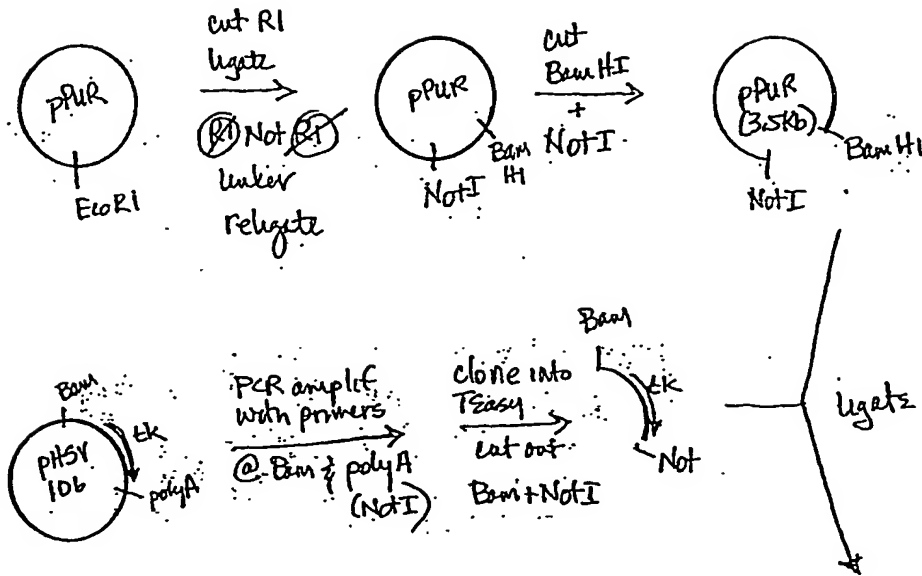 pPUR
EcoRI
cut RI
ligate
RI Not RI
linker
religate
pPUR
NotI
Bam
HI
cut
Bam HI
+
NotI
pPUR
(3.5Kb)
Bam HI
NotI
Bam
tk
pHSV
106
polyA
PCR amplif
with primers
@ Bam & polyA
(NotI)
clone into
TEasy
cut out
Bam + NotI
Bam
tk
Not
ligate